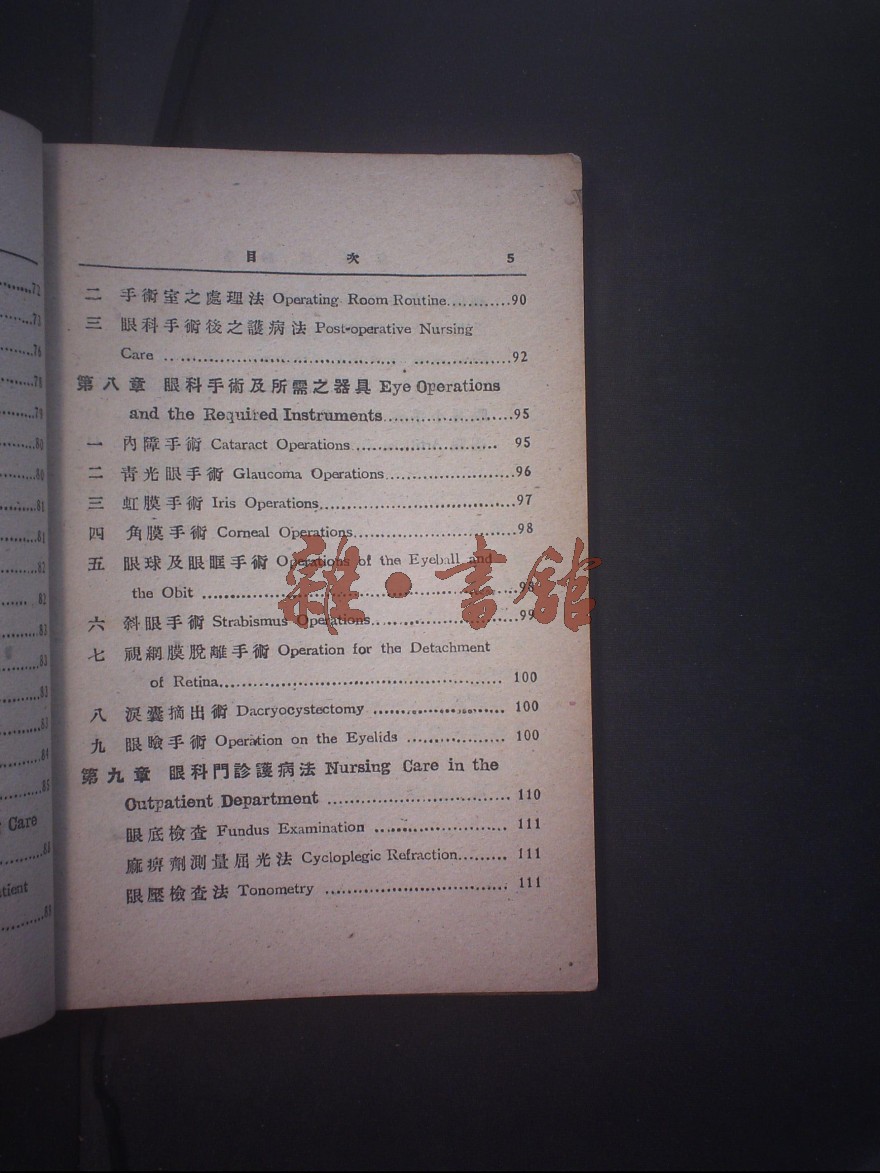 72
73
76
78
79
80
80
81
81
82
82
83
83
83
83
84
85
Care
88
tient
89
目 次 5
二 手術室之處理法 Operating Room Routine............90
三 眼科手術後之護病法 Post-operative Nursing
Care ........................................92
第八章 眼科手術及所需之器具 Eye Operations
and the Required Instruments......................95
一 內障手術 Cataract Operations.......................... 95
二 青光眼手術 Glaucoma Operations......................96
三 虹膜手術 Iris Operations..................................97
四 角膜手術 Corneal Operations...........................98
五 眼球及眼眶手術 Operations of the Eyeball and
the Obit ..................................................98
六 斜眼手術 Strabismus Operations........................99
七 視網膜脫離手術 Operation for the Detachment
of Retina.................................................. 100
八 淚囊摘出術 Dacryocystectomy ........................ 100
九 眼瞼手術 Operation on the Eyelids ................. 100
第九章 眼科門診護病法 Nursing Care in the
Outpatient Department ................................ 110
眼底檢查 Fundus Examination ........................ 111
麻痹劑測量屈光法 Cycloplegic Refraction......... 111
眼壓檢查法 Tonometry ................................ 111
雜·書館